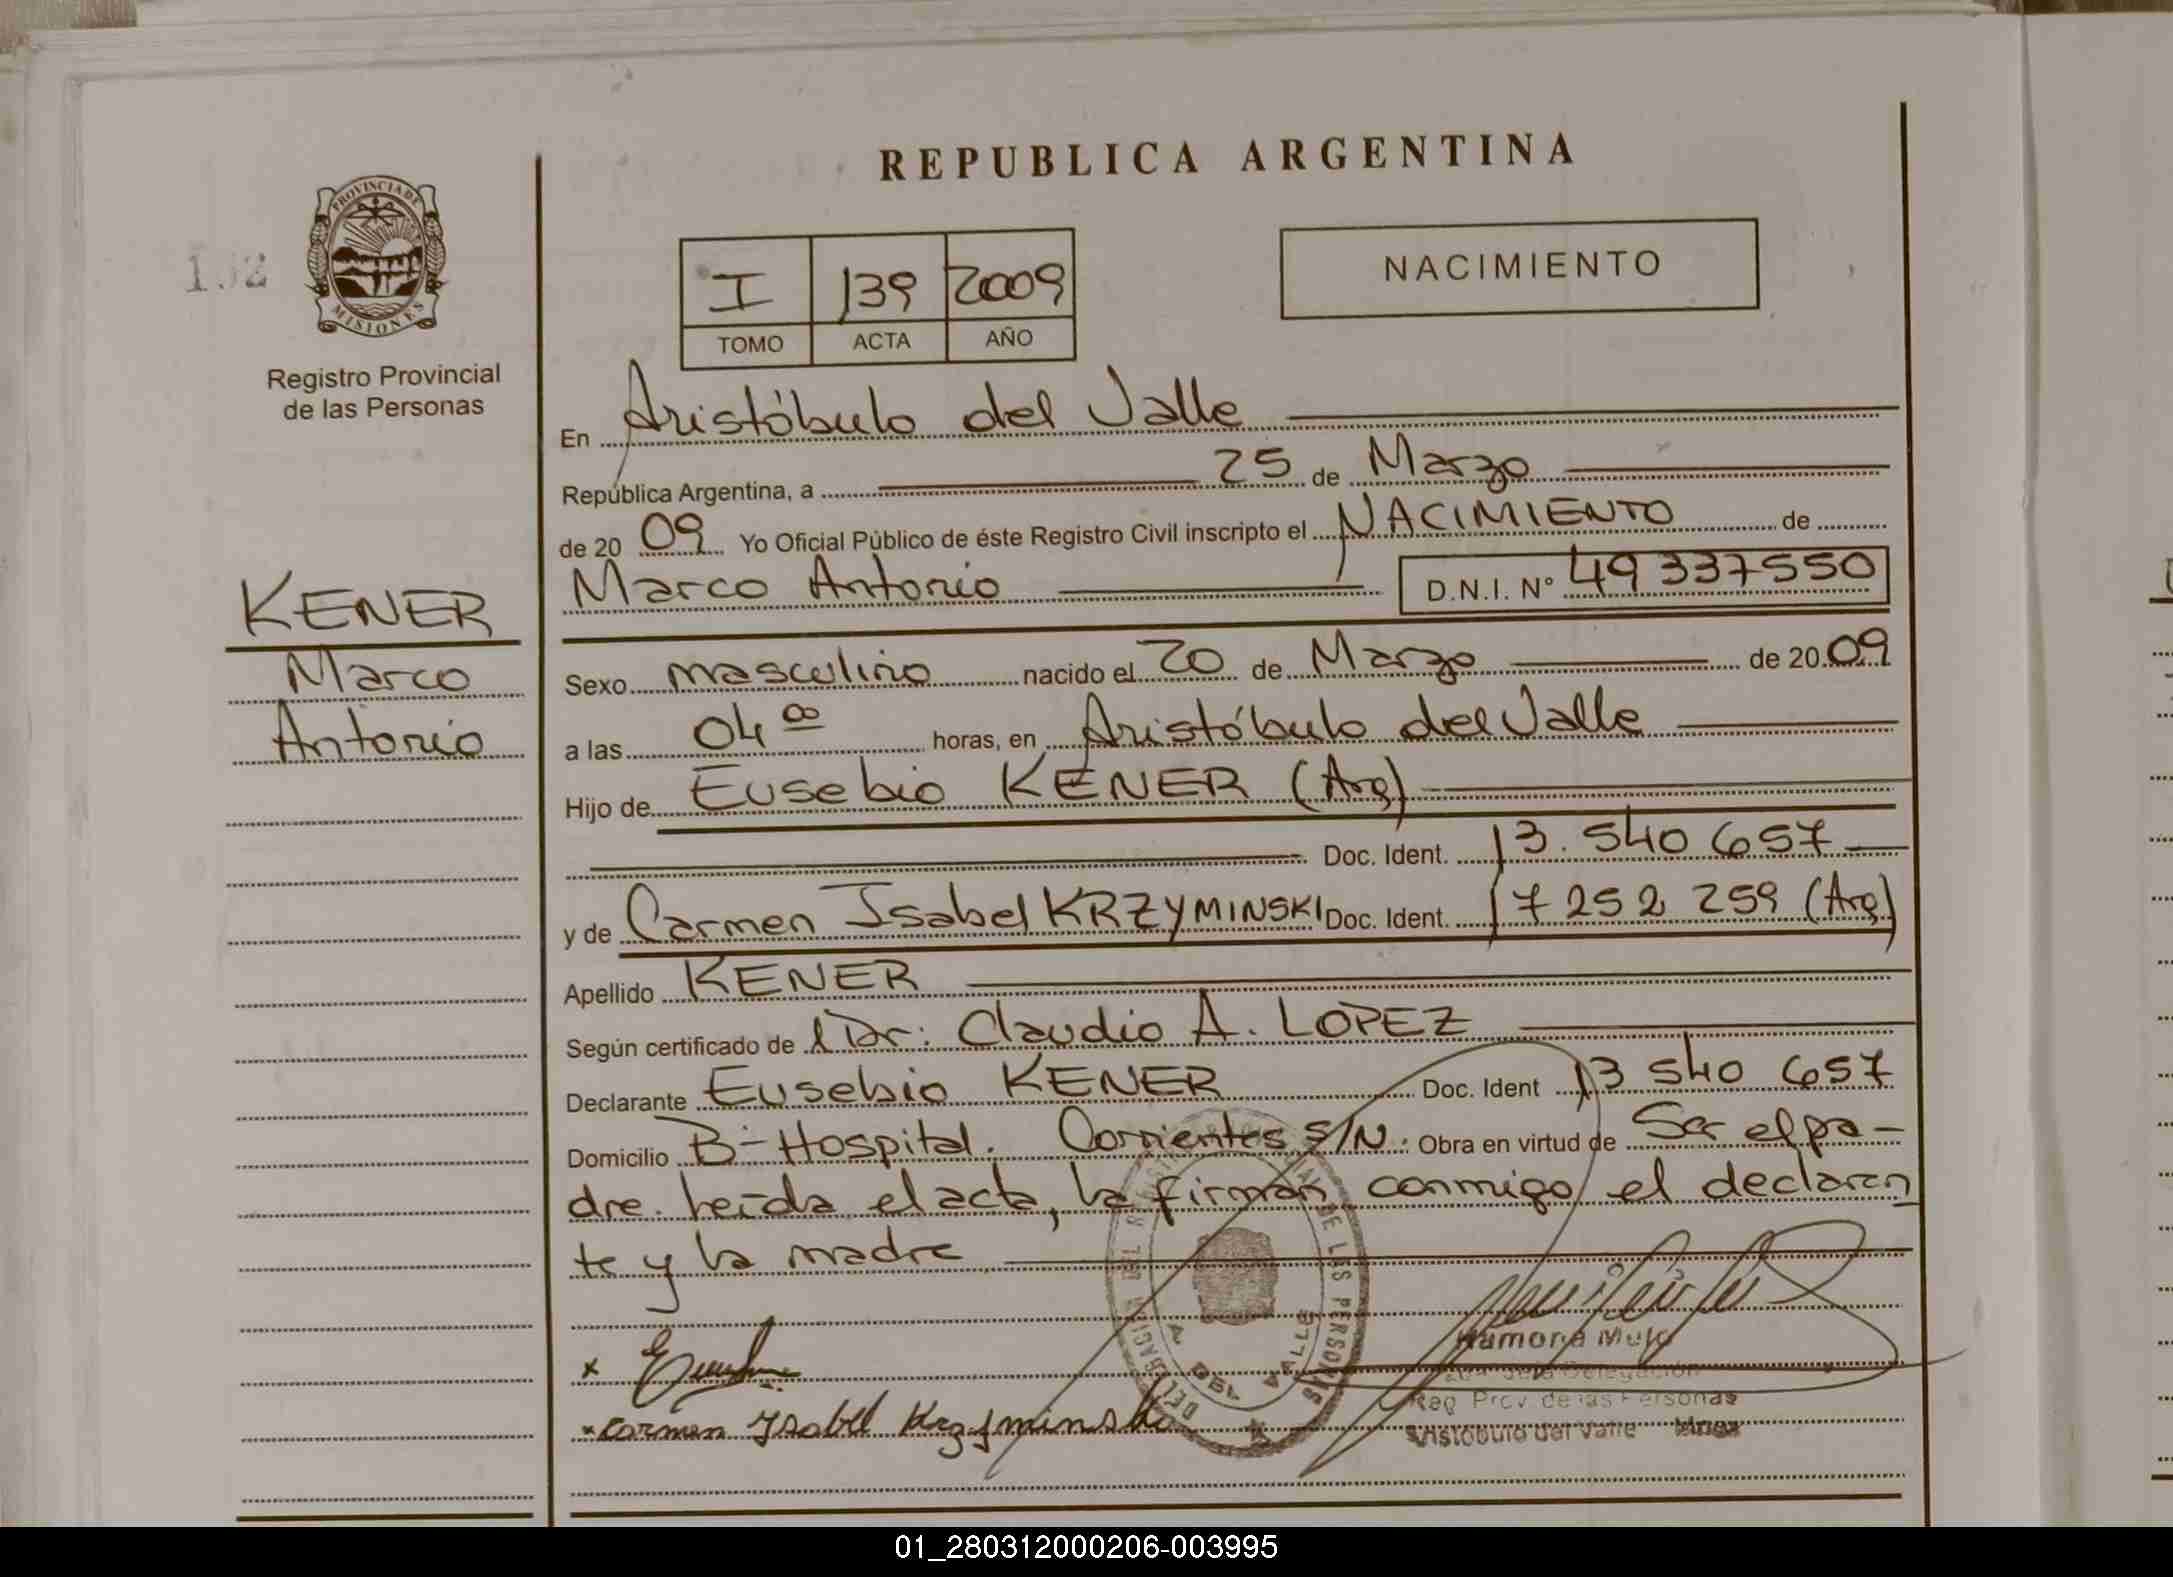 REPUBLICA ARGENTINA
PROVINCIA DE
MISIONES
Registro Provincial
de las Personas
I 139 2009
TOMO ACTA AÑO
NACIMIENTO
En Aristóbulo del Valle
República Argentina, a 25 de Marzo
de 20 09 Yo Oficial Público de éste Registro Civil inscripto el NACIMIENTO de
Marco Antonio D.N.I. Nº 49 337550
KENER
Marco
Antonio
Sexo masculino nacido el 20 de Marzo de 20 09
a las 04 00 horas, en Aristóbulo del Valle
Hijo de Eusebio KENER (Arg)
Doc. Ident. 13.540 657
y de Carmen Isabel KRZYMINSKI Doc. Ident. 17 252 259 (Arg)
Apellido KENER
Según certificado de Dr. Claudio A. LOPEZ
Declarante Eusebio KENER Doc. Ident 13 540 657
Domicilio Bº Hospital. Corrientes S/N. Obra en virtud de Ser el pa-
dre. leída el acta, la firman conmigo el declaran
te y la madre
x
x Carmen Ysabel Krzyminski
Ramona
de la Delegación
Reg Prov de las Personas
Aristóbulo del Valle Mnes
01_280312000206-003995